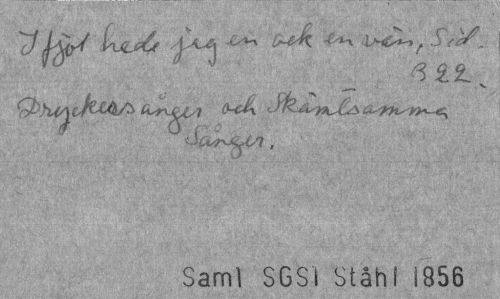 I fjol hade jag en ock en vän, Sid.
B 22.
Dryckessånger och Skämtsamma
Sånger.
Saml SGS1 Ståhl 1856